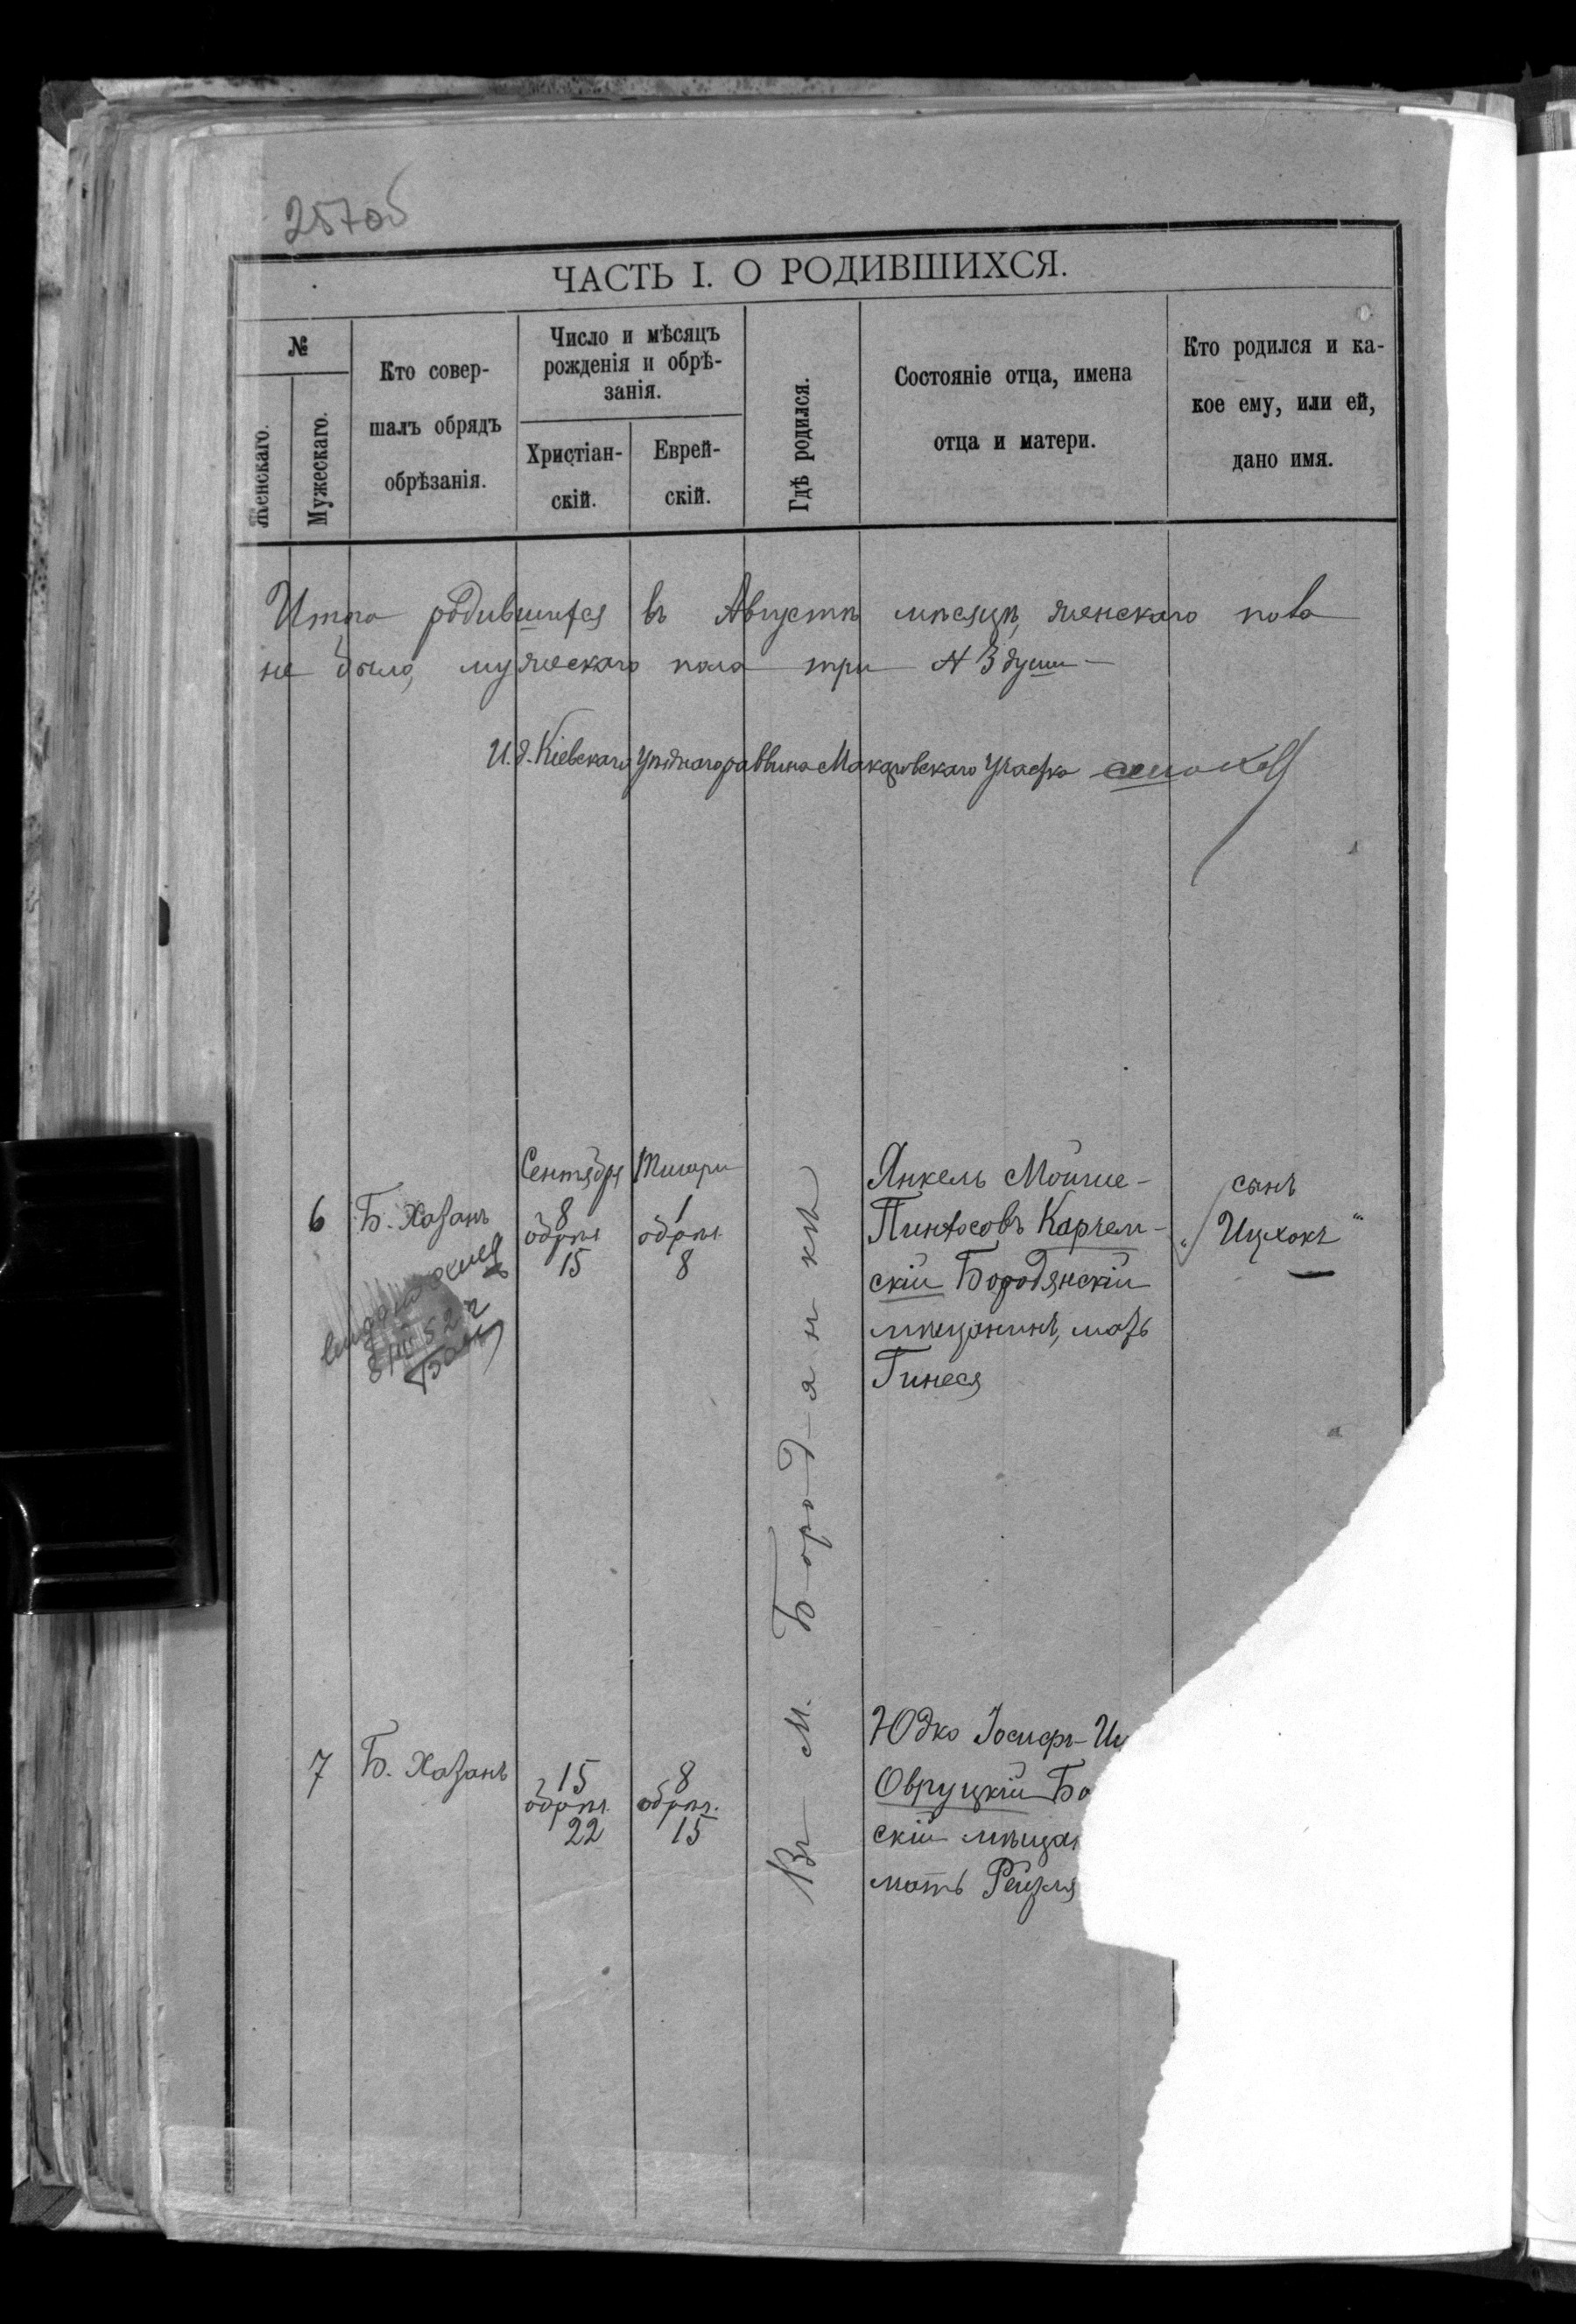 257об
ЧАСТЬ I. О РОДИВШИХСЯ.
№
Женскаго.
Мужескаго.
Кто совер-
шалъ обрядъ
обрѣзанія.
Число и мѣсяцъ
рожденія и обрѣ-
занія.
Христіан-
скій.
Еврей-
скій.
Гдѣ родился.
Состояніе отца, имена
отца и матери.
Кто родился и ка-
кое ему, или ей,
дано имя.
Итого родившихся въ Августѣ мѣсяцѣ, женскаго пола
не было, мужескаго пола три № 3 души
И. д. Кіевскаго Уѣзднаго раввина Макаровскаго Участка
6
Б. Хазанъ
Сентября
8
обрѣз.
15
Тишри
1
обрѣз.
8
Въ м. Бородянкѣ
Янкель Мойше-
Пинхосовъ Карчем-
скій Бородянскій
мѣщанинъ, мать
Гинеся
сынъ
„Ицхокъ“
7
Б. Хазанъ
15
обрѣз.
22
8
обрѣз.
15
Юдко Іосифъ-Иц
Овруцкій Бо
скій мѣщан
мать Рейзля